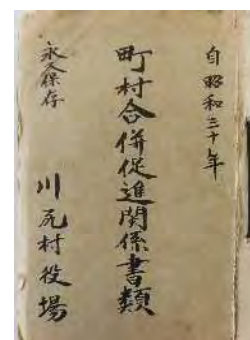 自昭和三十年
町村合併促進関係書類
永久保存
川尻村役場